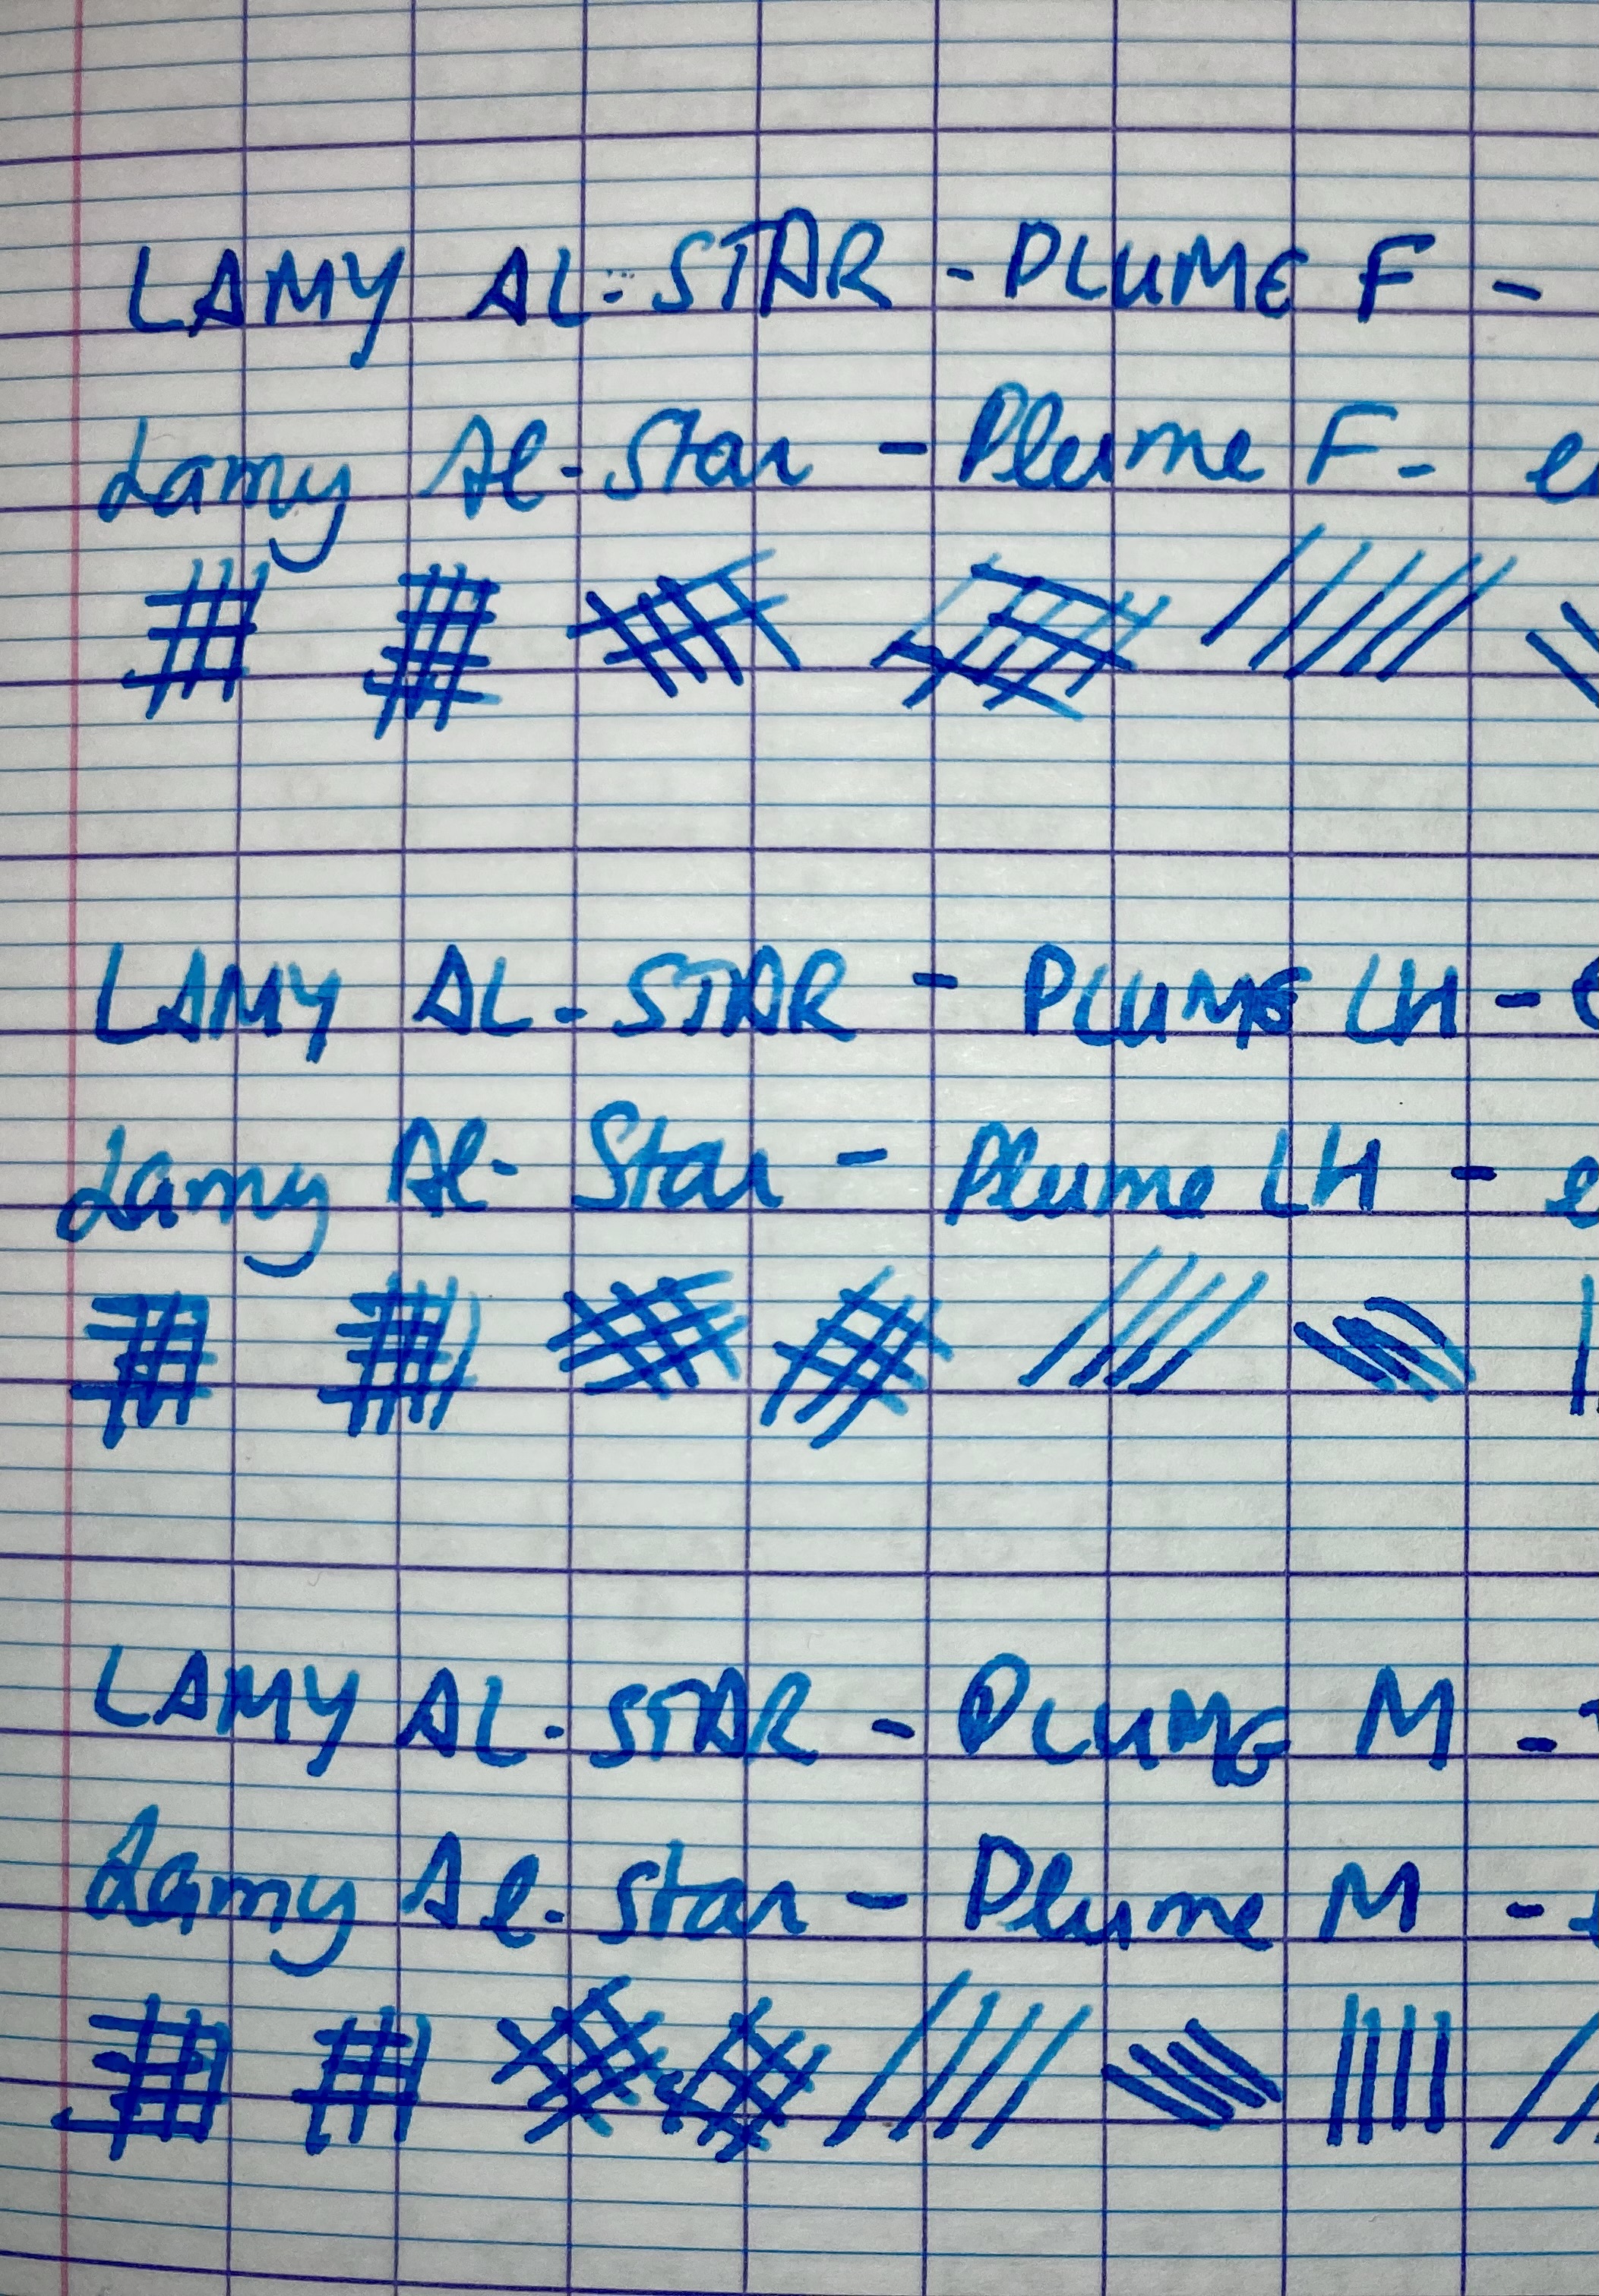 LAMY AL-STAR - PLUME F -
Lamy Al-Star - Plume F -
LAMY AL-STAR - PLUME LH -
Lamy Al-Star - Plume LH -
LAMY AL-STAR - PLUME M -
Lamy Al-Star - Plume M -